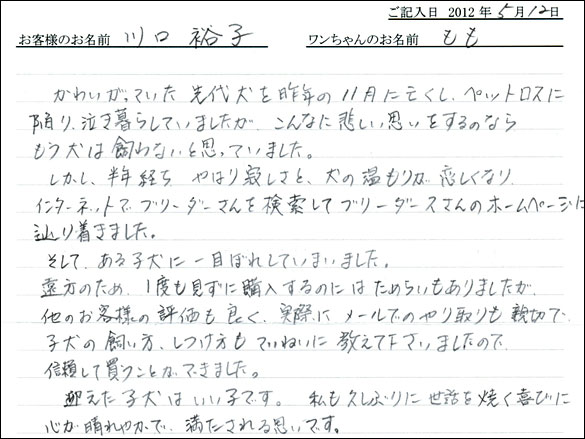 ご記入日 2012年5月12日
お客様のお名前 川口 裕子 ワンちゃんのお名前 もも
かわいがっていた先代犬を昨年の11月に亡くし、ペットロスに
陥り、泣き暮らしていましたが、こんなに悲しい思いをするのなら
もう犬は飼わないと思っていました。
しかし、半年経ち やはり寂しさと、犬の温もりが恋しくなり
インターネットでブリーダーさんを検索してブリーダーズさんのホームページに
辿り着きました。
そして、ある子犬に一目ぼれしてしまいました。
遠方のため、1度も見ずに購入するのにはためらいもありましたが、
他のお客様の評価も良く、実際にメールでのやり取りも親切で、
子犬の飼い方、しつけ方もていねいに教えて下さいましたので、
信頼して買うことができました。
迎えた子犬はいい子です。 私も久しぶりに世話を焼く喜びに
心が晴れやかで、満たされる思いです。